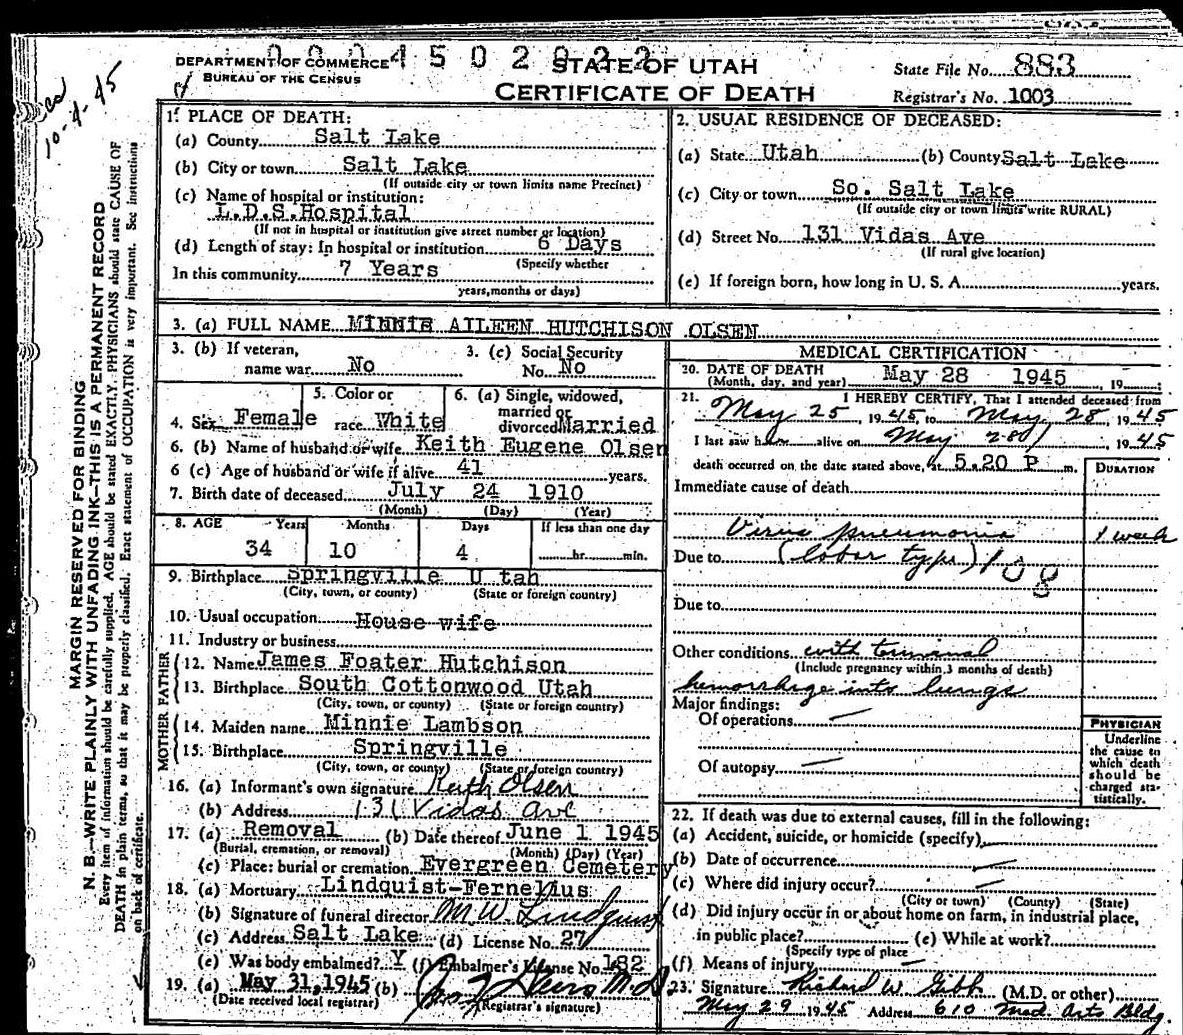 DEPARTMENT OF COMMERCE
BUREAU OF THE CENSUS
STATE OF UTAH
CERTIFICATE OF DEATH
State File No. 883
Registrar's No. 1003
10-4-45
MARGIN RESERVED FOR BINDING
N. B.—WRITE PLAINLY WITH UNFADING INK—THIS IS A PERMANENT RECORD
Every item of information should be carefully supplied. AGE should be stated EXACTLY. PHYSICIANS should state CAUSE OF
DEATH in plain terms, so that it may be properly classified. Exact statement of OCCUPATION is very important. See instructions
on back of certificate.
1. PLACE OF DEATH:
(a) County Salt Lake
(b) City or town Salt Lake
(If outside city or town limits name Precinct)
(c) Name of hospital or institution:
L.D.S.Hospital
(If not in hospital or institution give street number or location)
(d) Length of stay: In hospital or institution 6 Days
(Specify whether
In this community 7 Years
years, months or days)
2. USUAL RESIDENCE OF DECEASED:
(a) State Utah (b) County Salt Lake
(c) City or town So. Salt Lake
(If outside city or town limits write RURAL)
(d) Street No. 131 Vidas Ave
(If rural give location)
(e) If foreign born, how long in U. S. A. years.
3. (a) FULL NAME MINNIE AILEEN HUTCHISON OLSEN
3. (b) If veteran, name war No
3. (c) Social Security No. No
4. Sex Female
5. Color or race White
6. (a) Single, widowed, married or divorced Married
6. (b) Name of husband or wife Keith Eugene Olsen
6 (c) Age of husband or wife if alive 41 years.
7. Birth date of deceased July 24 1910
(Month) (Day) (Year)
8. AGE Years Months Days If less than one day
34 10 4 hr. min.
9. Birthplace Springville U tah
(City, town, or county) (State or foreign country)
10. Usual occupation House wife
11. Industry or business
FATHER
12. Name James Foater Hutchison
13. Birthplace South Cottonwood Utah
(City, town, or county) (State or foreign country)
MOTHER
14. Maiden name Minnie Lambson
15. Birthplace Springville
(City, town, or county) (State or foreign country)
16. (a) Informant's own signature Keith Olsen
(b) Address 131 Vidas Ave
17. (a) Removal (b) Date thereof June 1 1945
(Burial, cremation, or removal) (Month) (Day) (Year)
(c) Place: burial or cremation Evergreen Cemetery
18. (a) Mortuary Lindquist-Fernelius
(b) Signature of funeral director M.W. Lindquist
(c) Address Salt Lake (d) License No. 27
(e) Was body embalmed? Y (f) Embalmer's License No. 182
19. (a) May 31, 1945 (b) M.D.
(Date received local registrar) (Registrar's signature)
MEDICAL CERTIFICATION
20. DATE OF DEATH
(Month, day, and year) May 28 1945, 19
21. I HEREBY CERTIFY, That I attended deceased from
May 25, 1945, to May 28, 1945
I last saw h alive on May 28, 1945
death occurred on the date stated above, at 5.20 P m.
DURATION
Immediate cause of death
Virus pneumonia 1 week
Due to (lobar type) 108
Due to
Other conditions with terminal
(Include pregnancy within 3 months of death)
hemorrhage into lungs
Major findings:
Of operations —
Of autopsy —
PHYSICIAN
Underline
the cause to
which death
should be
charged sta-
tistically.
22. If death was due to external causes, fill in the following:
(a) Accident, suicide, or homicide (specify)
(b) Date of occurrence —
(c) Where did injury occur? —
(City or town) (County) (State)
(d) Did injury occur in or about home on farm, in industrial place,
in public place? (e) While at work?
(Specify type of place
(f) Means of injury —
23. Signature Richard W. Gibb (M.D. or other)
May 29 1945 Address 610 Med. Arts Bldg.